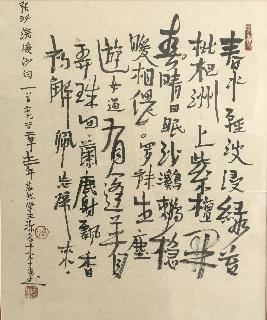 春水輕波浸綠苔
枇杷洲上紫檀開
春晴日眠沙鸂鶒穩
暖相偎羅袜生塵
遊女過有人逢着
弄珠回蘭麝飄香
初解佩忘歸來
張泌浣溪沙词